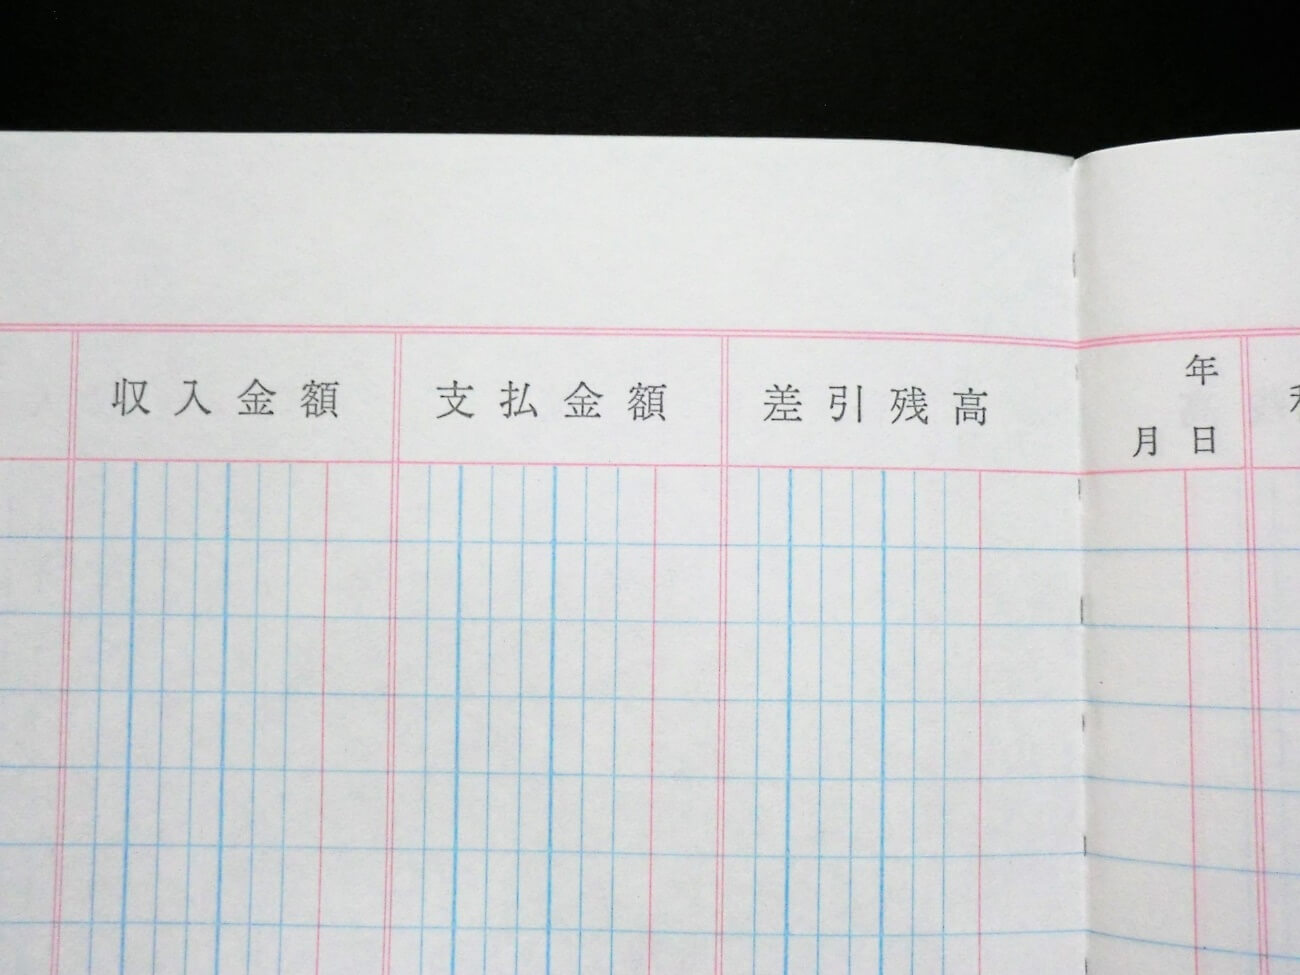 収入金額 支払金額 差引残高
年
月 日